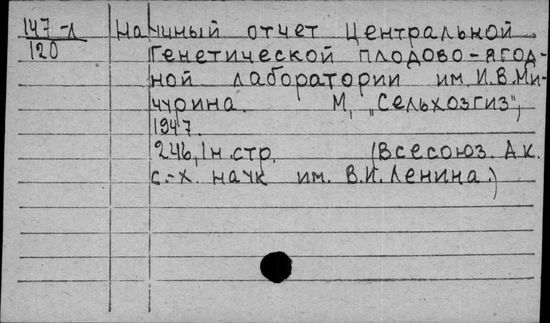 147-л
120
Научный отчет Центральной
Генетической плодово-ягод-
ной лаборатории им. И.В.Ми-
чурина. М, „Сельхозгиз",
1947.
246, 1н.стр. (Всесоюз. Ак.
с.-х. наук им. В.И. Ленина.)